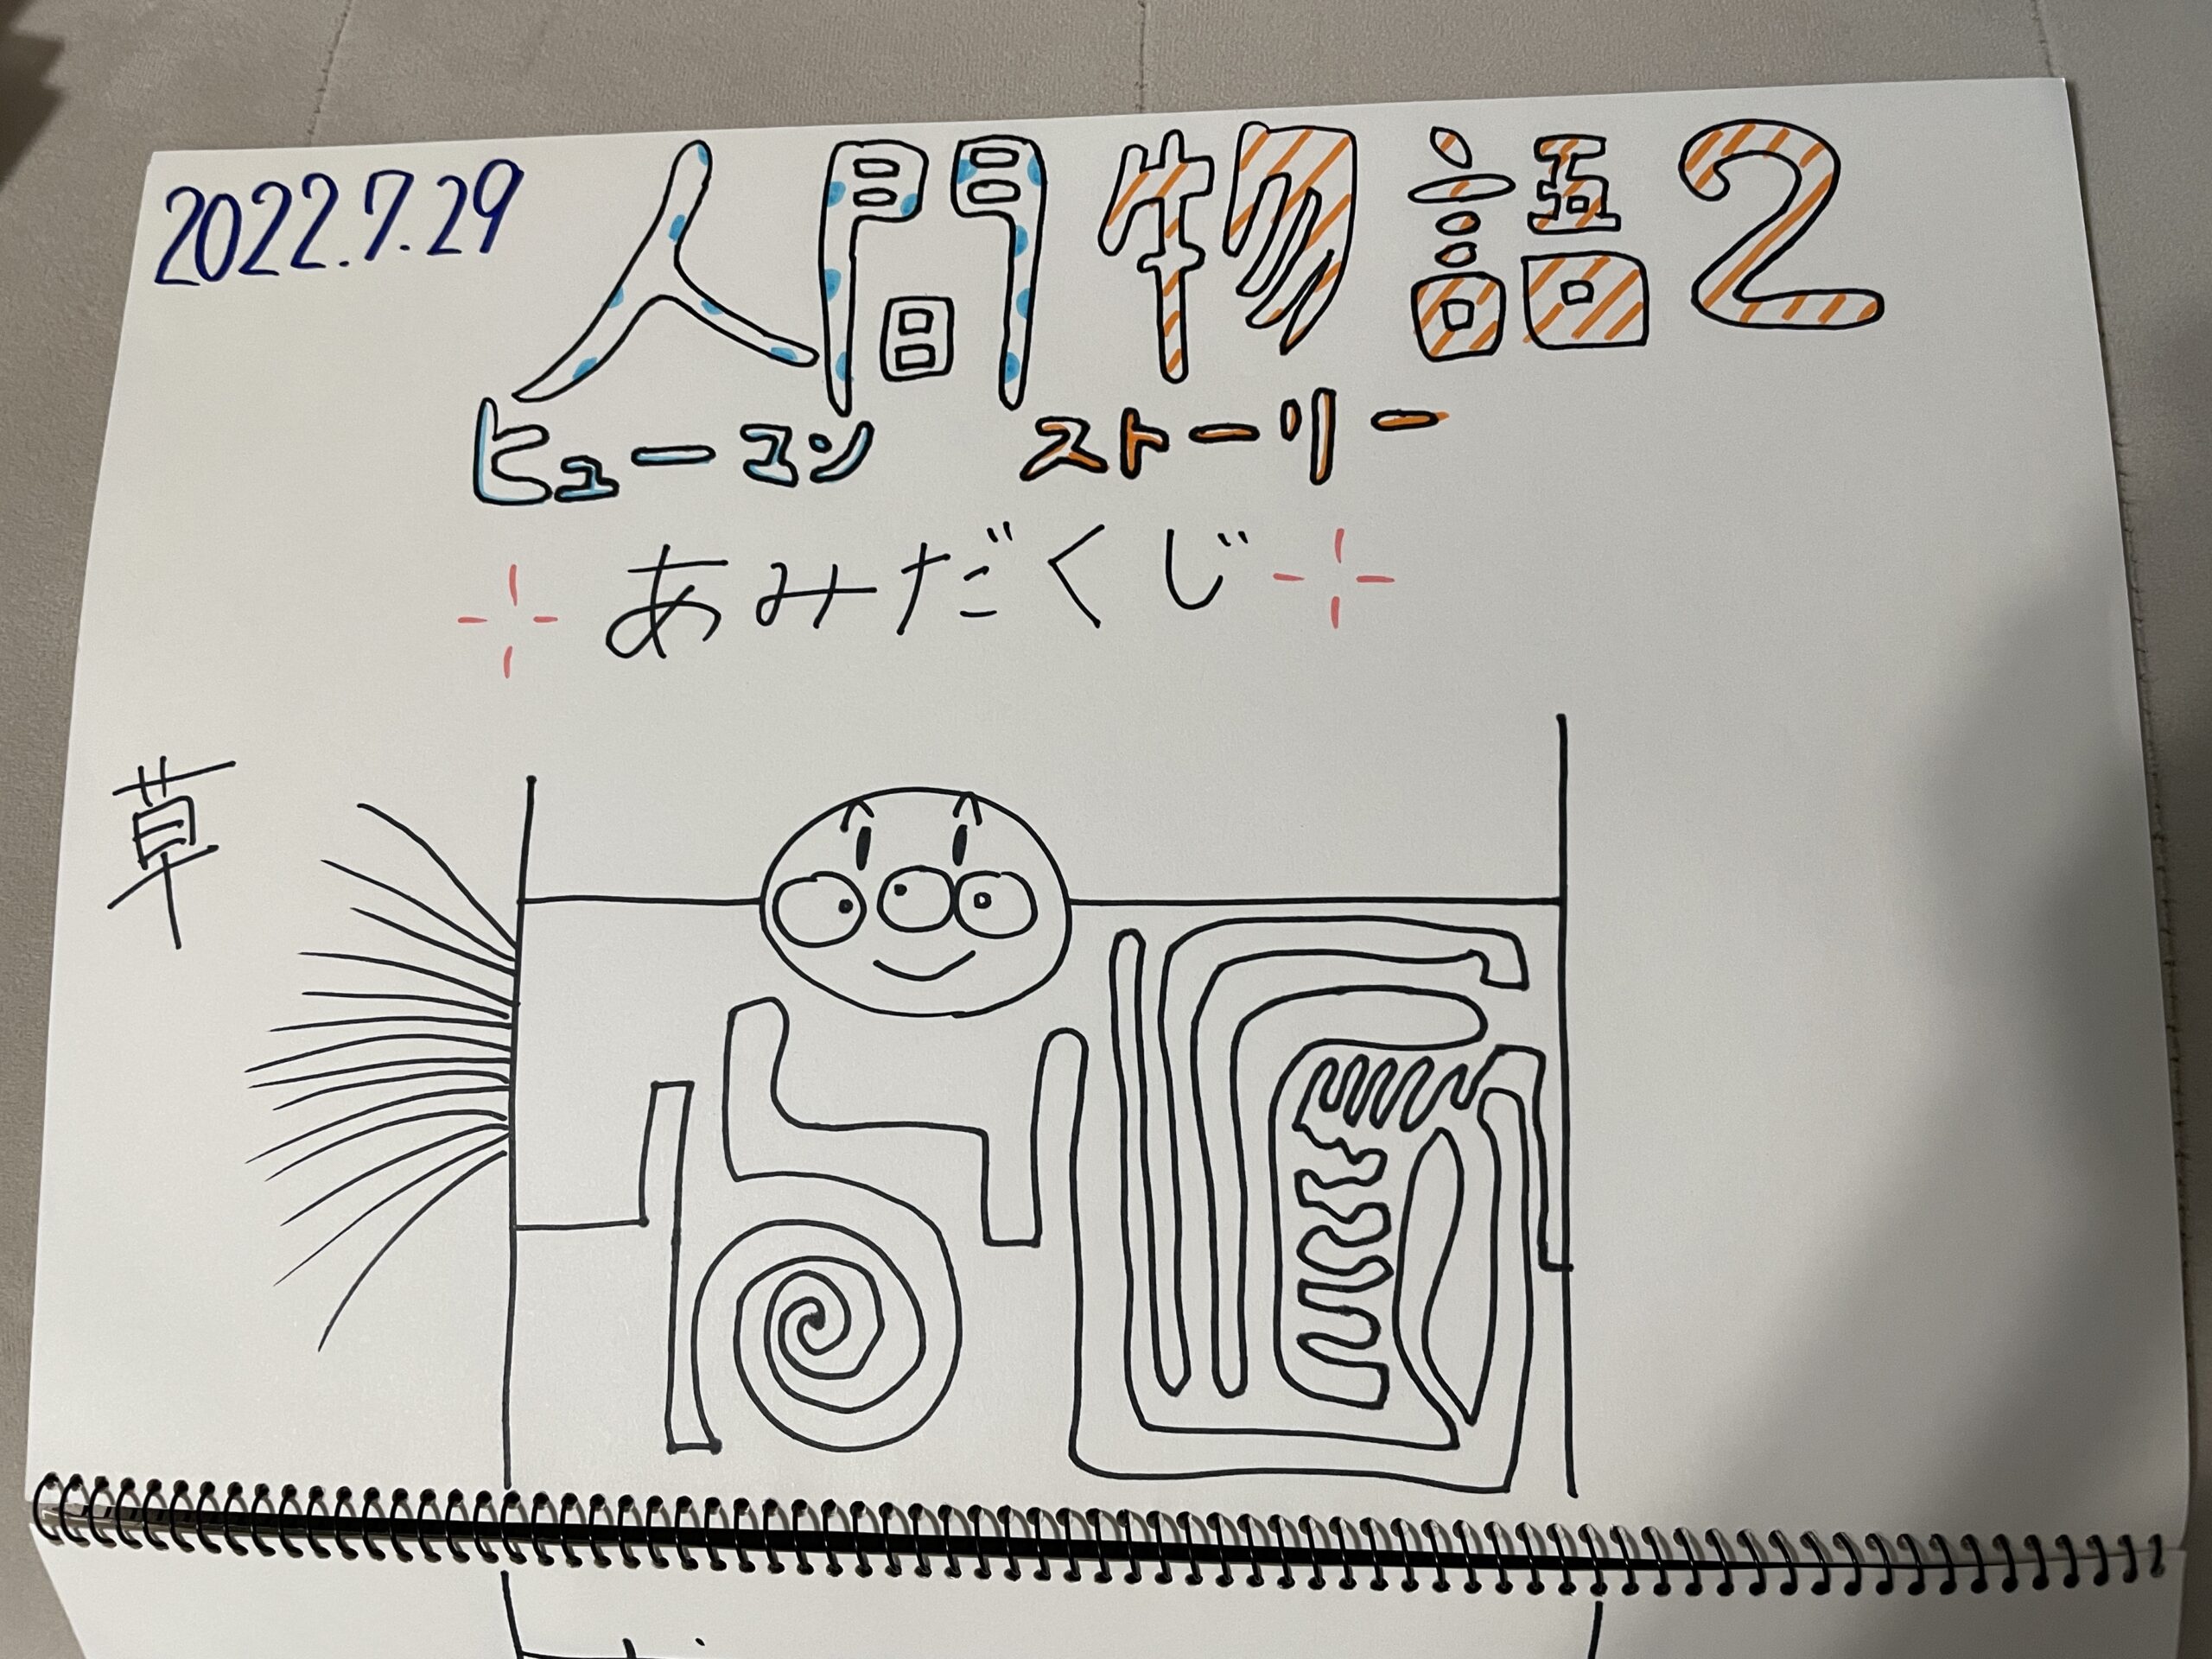 2022.7.29
人間物語2
ヒューマン ストーリー
あみだくじ
草